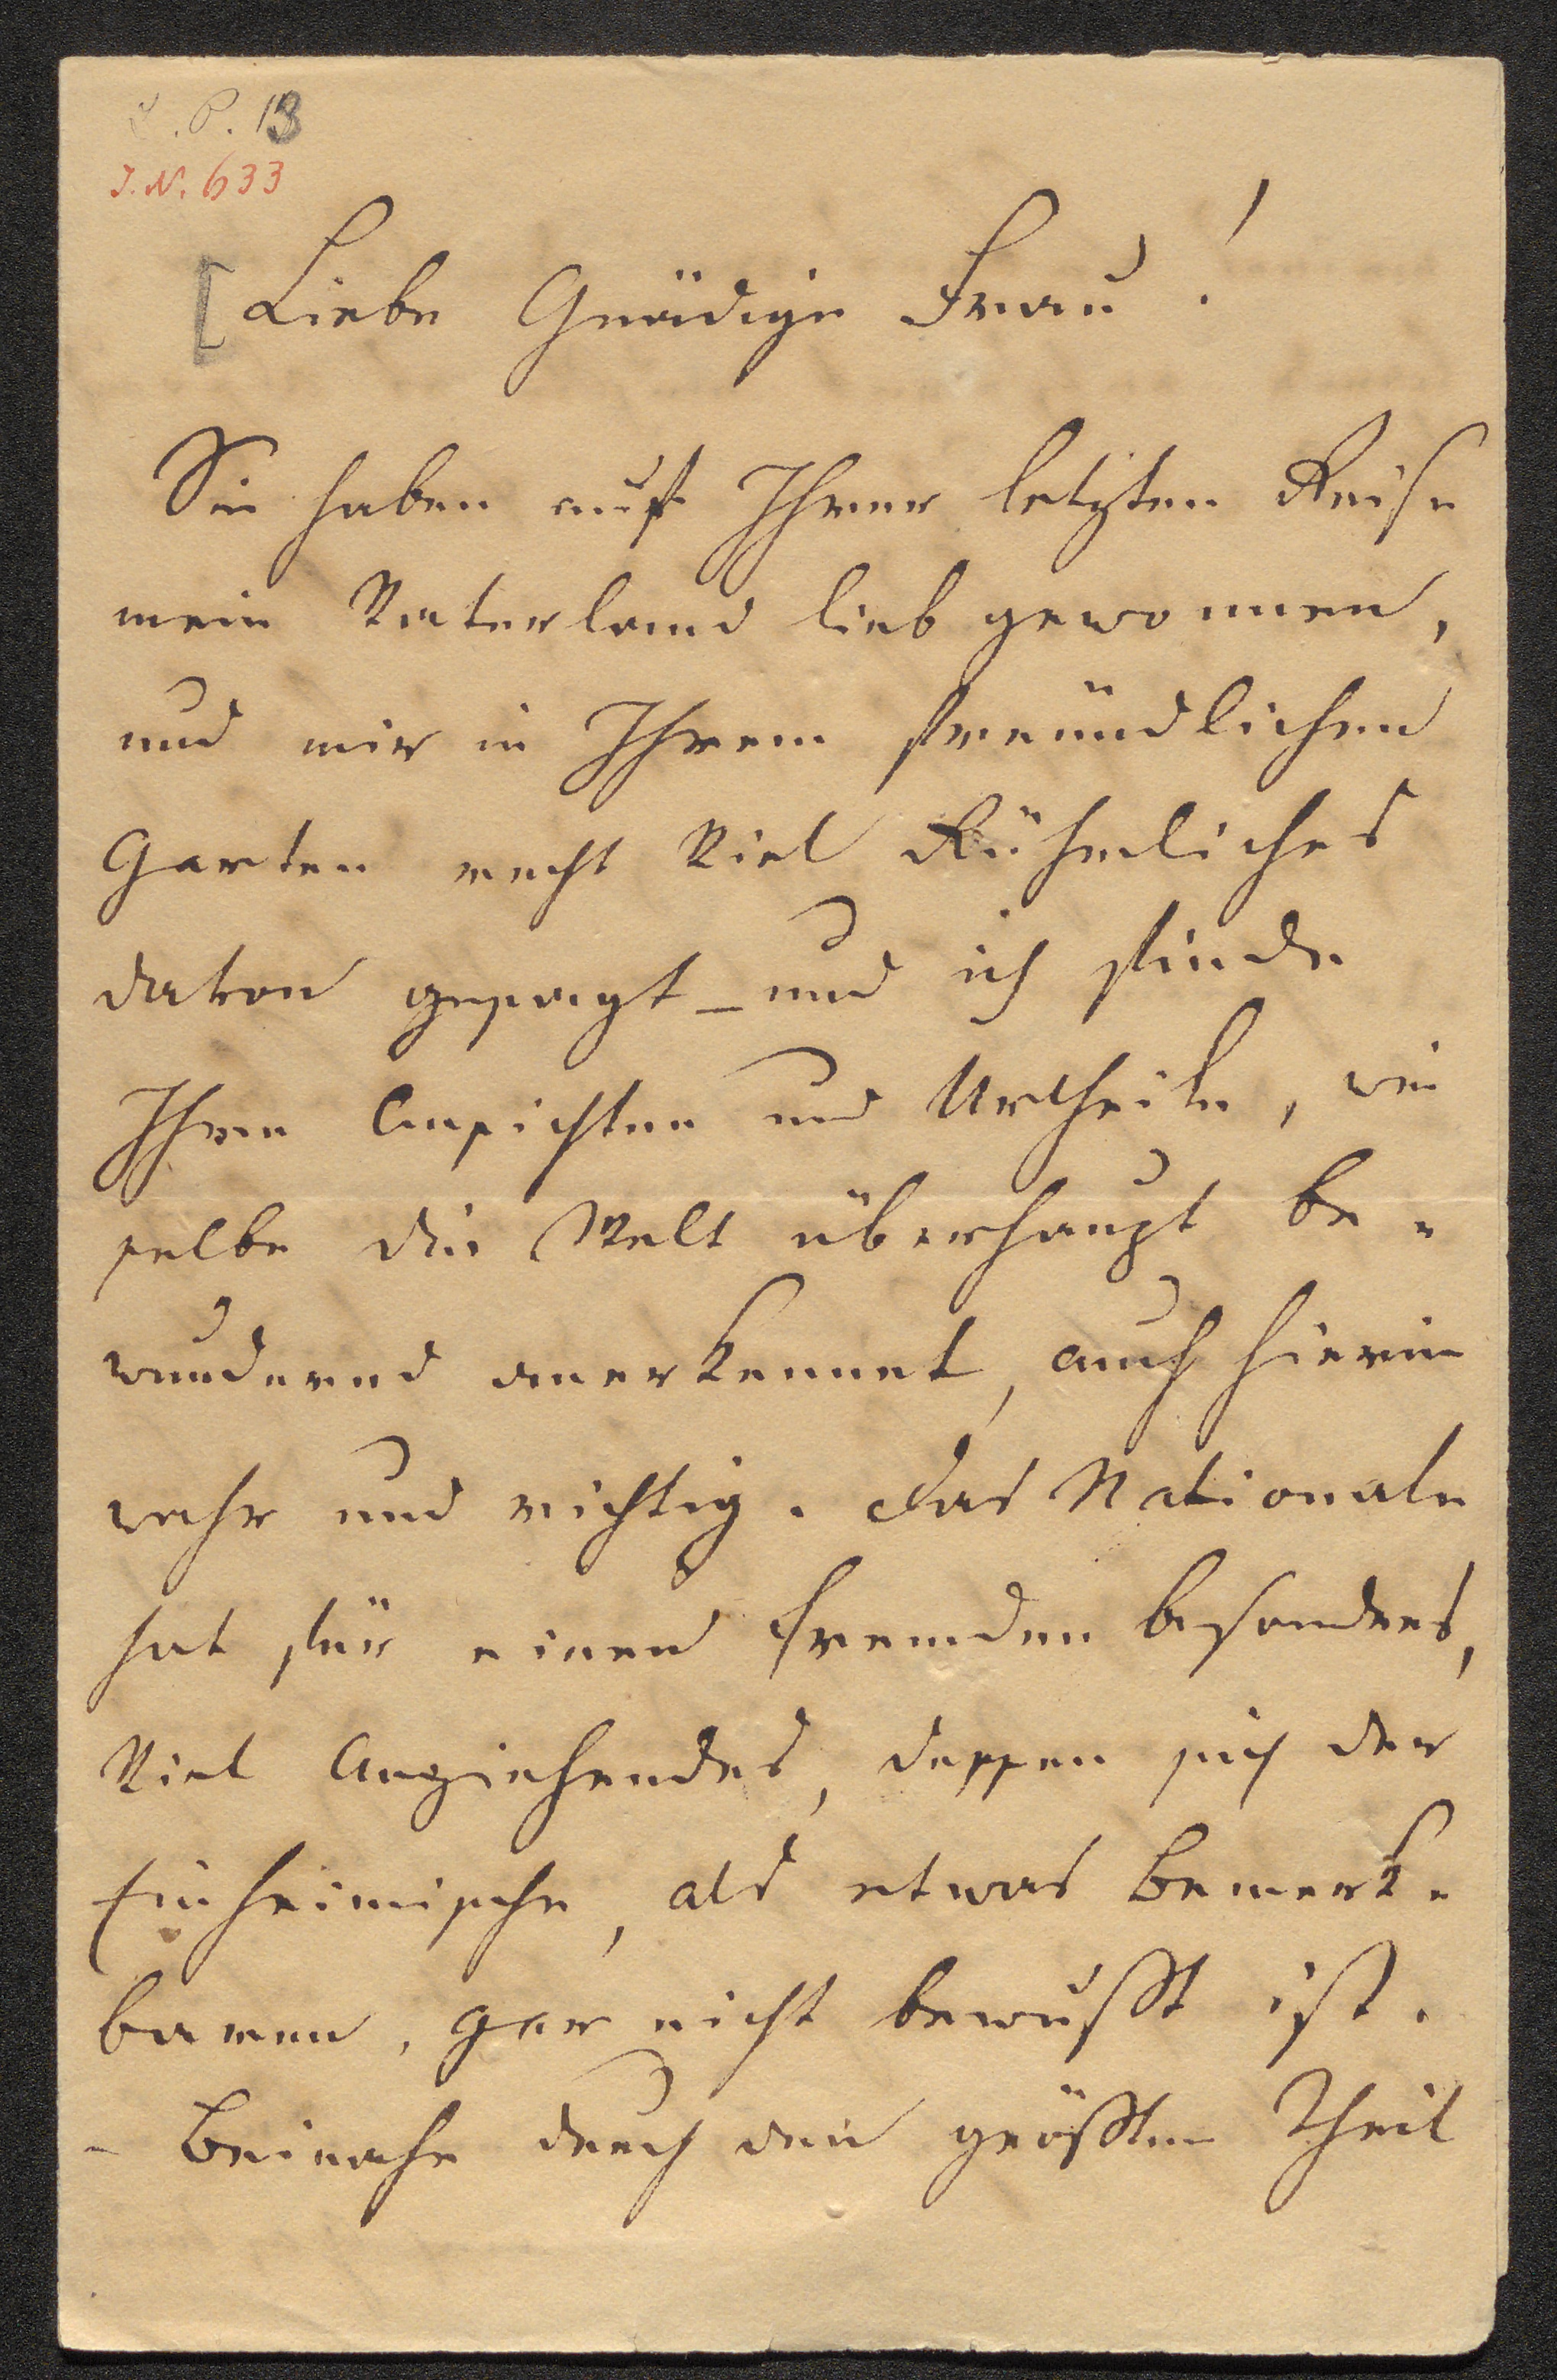 P. 13
J.N. 633
[Liebe Gnädige Frau!
Sie haben auf Ihrer letzten Reise
mein Vaterland lieb gewonnen,
und mir in Ihrem freundlichen
Garten recht Viel Rühmliches
davon gesagt – und ich finde
Ihre Ansichten und Urtheile, wie
selbe die Welt überhaupt be-
wundernd anerkennet, auch hierin
wahr und richtig. Das Nationale
hat für einen Fremden besonders,
Viel Anziehendes, dessen sich der
Einheimische, als etwas Bemerk-
baren, gar nicht bewußt ist.
- Beinahe durch den größten Theil